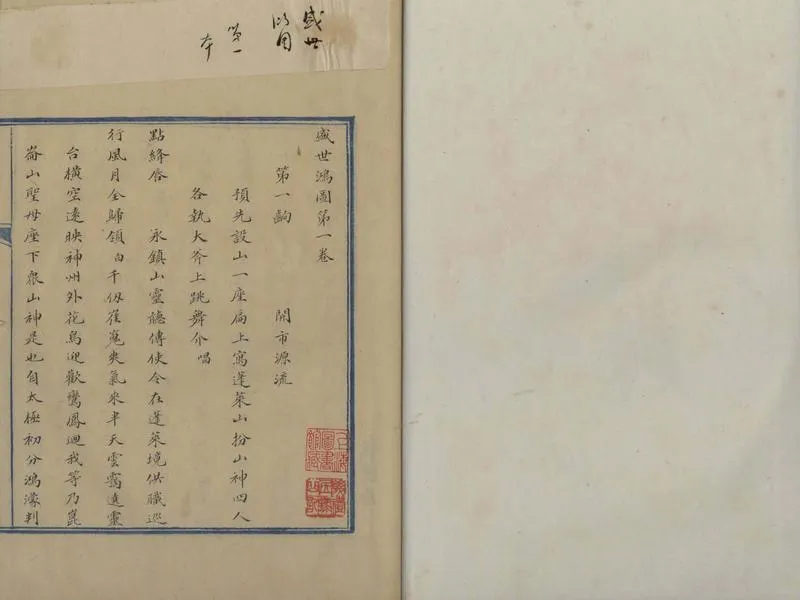 盛世
第一
本
盛世鴻圖第一卷
第一齣　開市源流
預先設山一座扁上寫蓬萊山扮山神四人
各執大斧上跳舞介唱
點絳唇　永鎮山靈聽傳使令在蓬萊境供職巡
行風月全歸領白千仭崔嵬爽氣來半天雲靄遶靈
台橫空遠映神州外花鳥迎歡鸞鳳迴我等乃崑
崙山聖母座下衆山神是也自太極初分鴻濛判